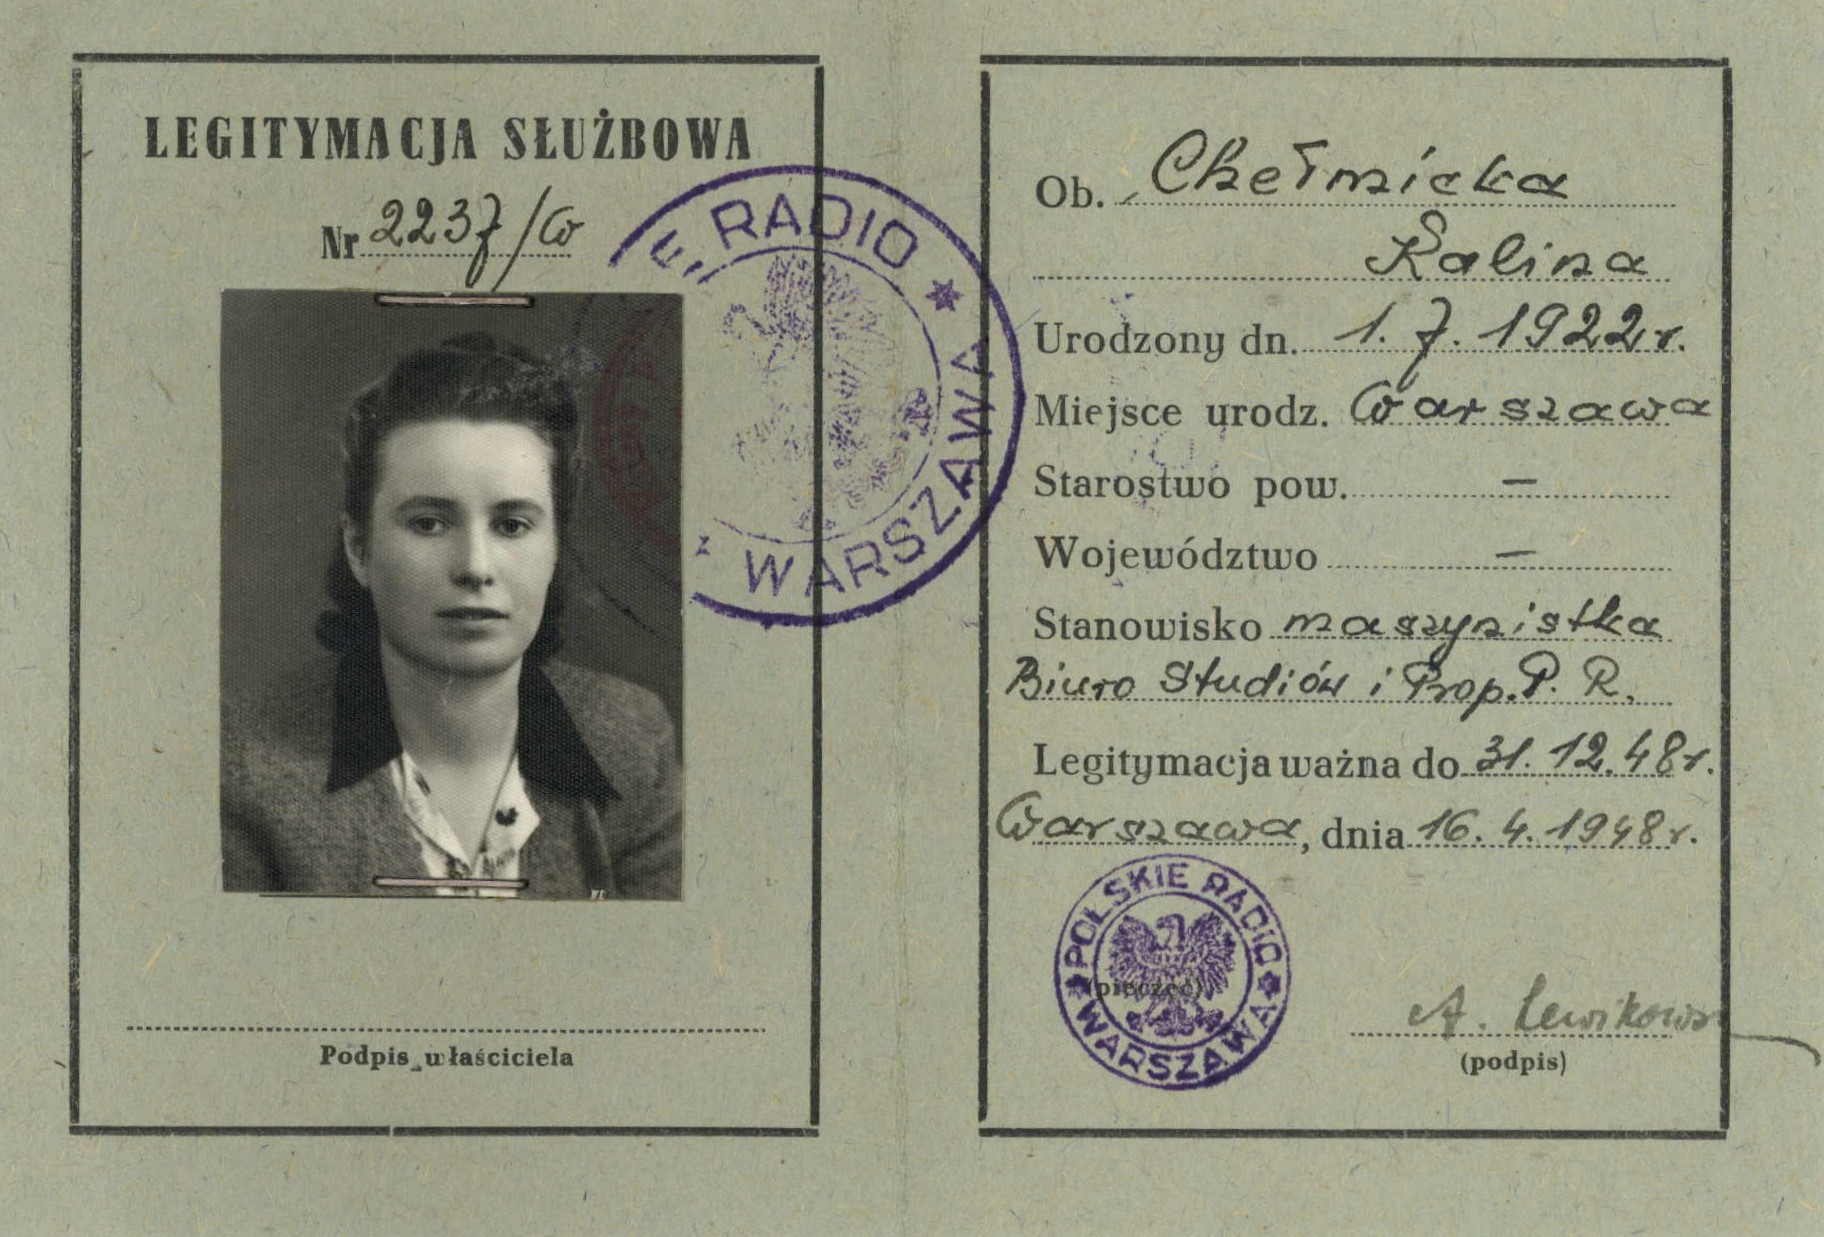 LEGITYMACJA SŁUŻBOWA
Nr 2237/W
E RADIO * WARSZAWA
Podpis właściciela
Ob. Chełmicka
Kalina
Urodzony dn. 1. 7. 1922 r.
Miejsce urodz. Warszawa
Starostwo pow. —
Województwo —
Stanowisko maszynistka
Biuro Studiów i Prop. P. R.
Legitymacja ważna do 31. 12. 48 r.
Warszawa, dnia 16. 4. 1948 r.
* POLSKIE RADIO * WARSZAWA
(pieczęć)
A. Lewikows
(podpis)